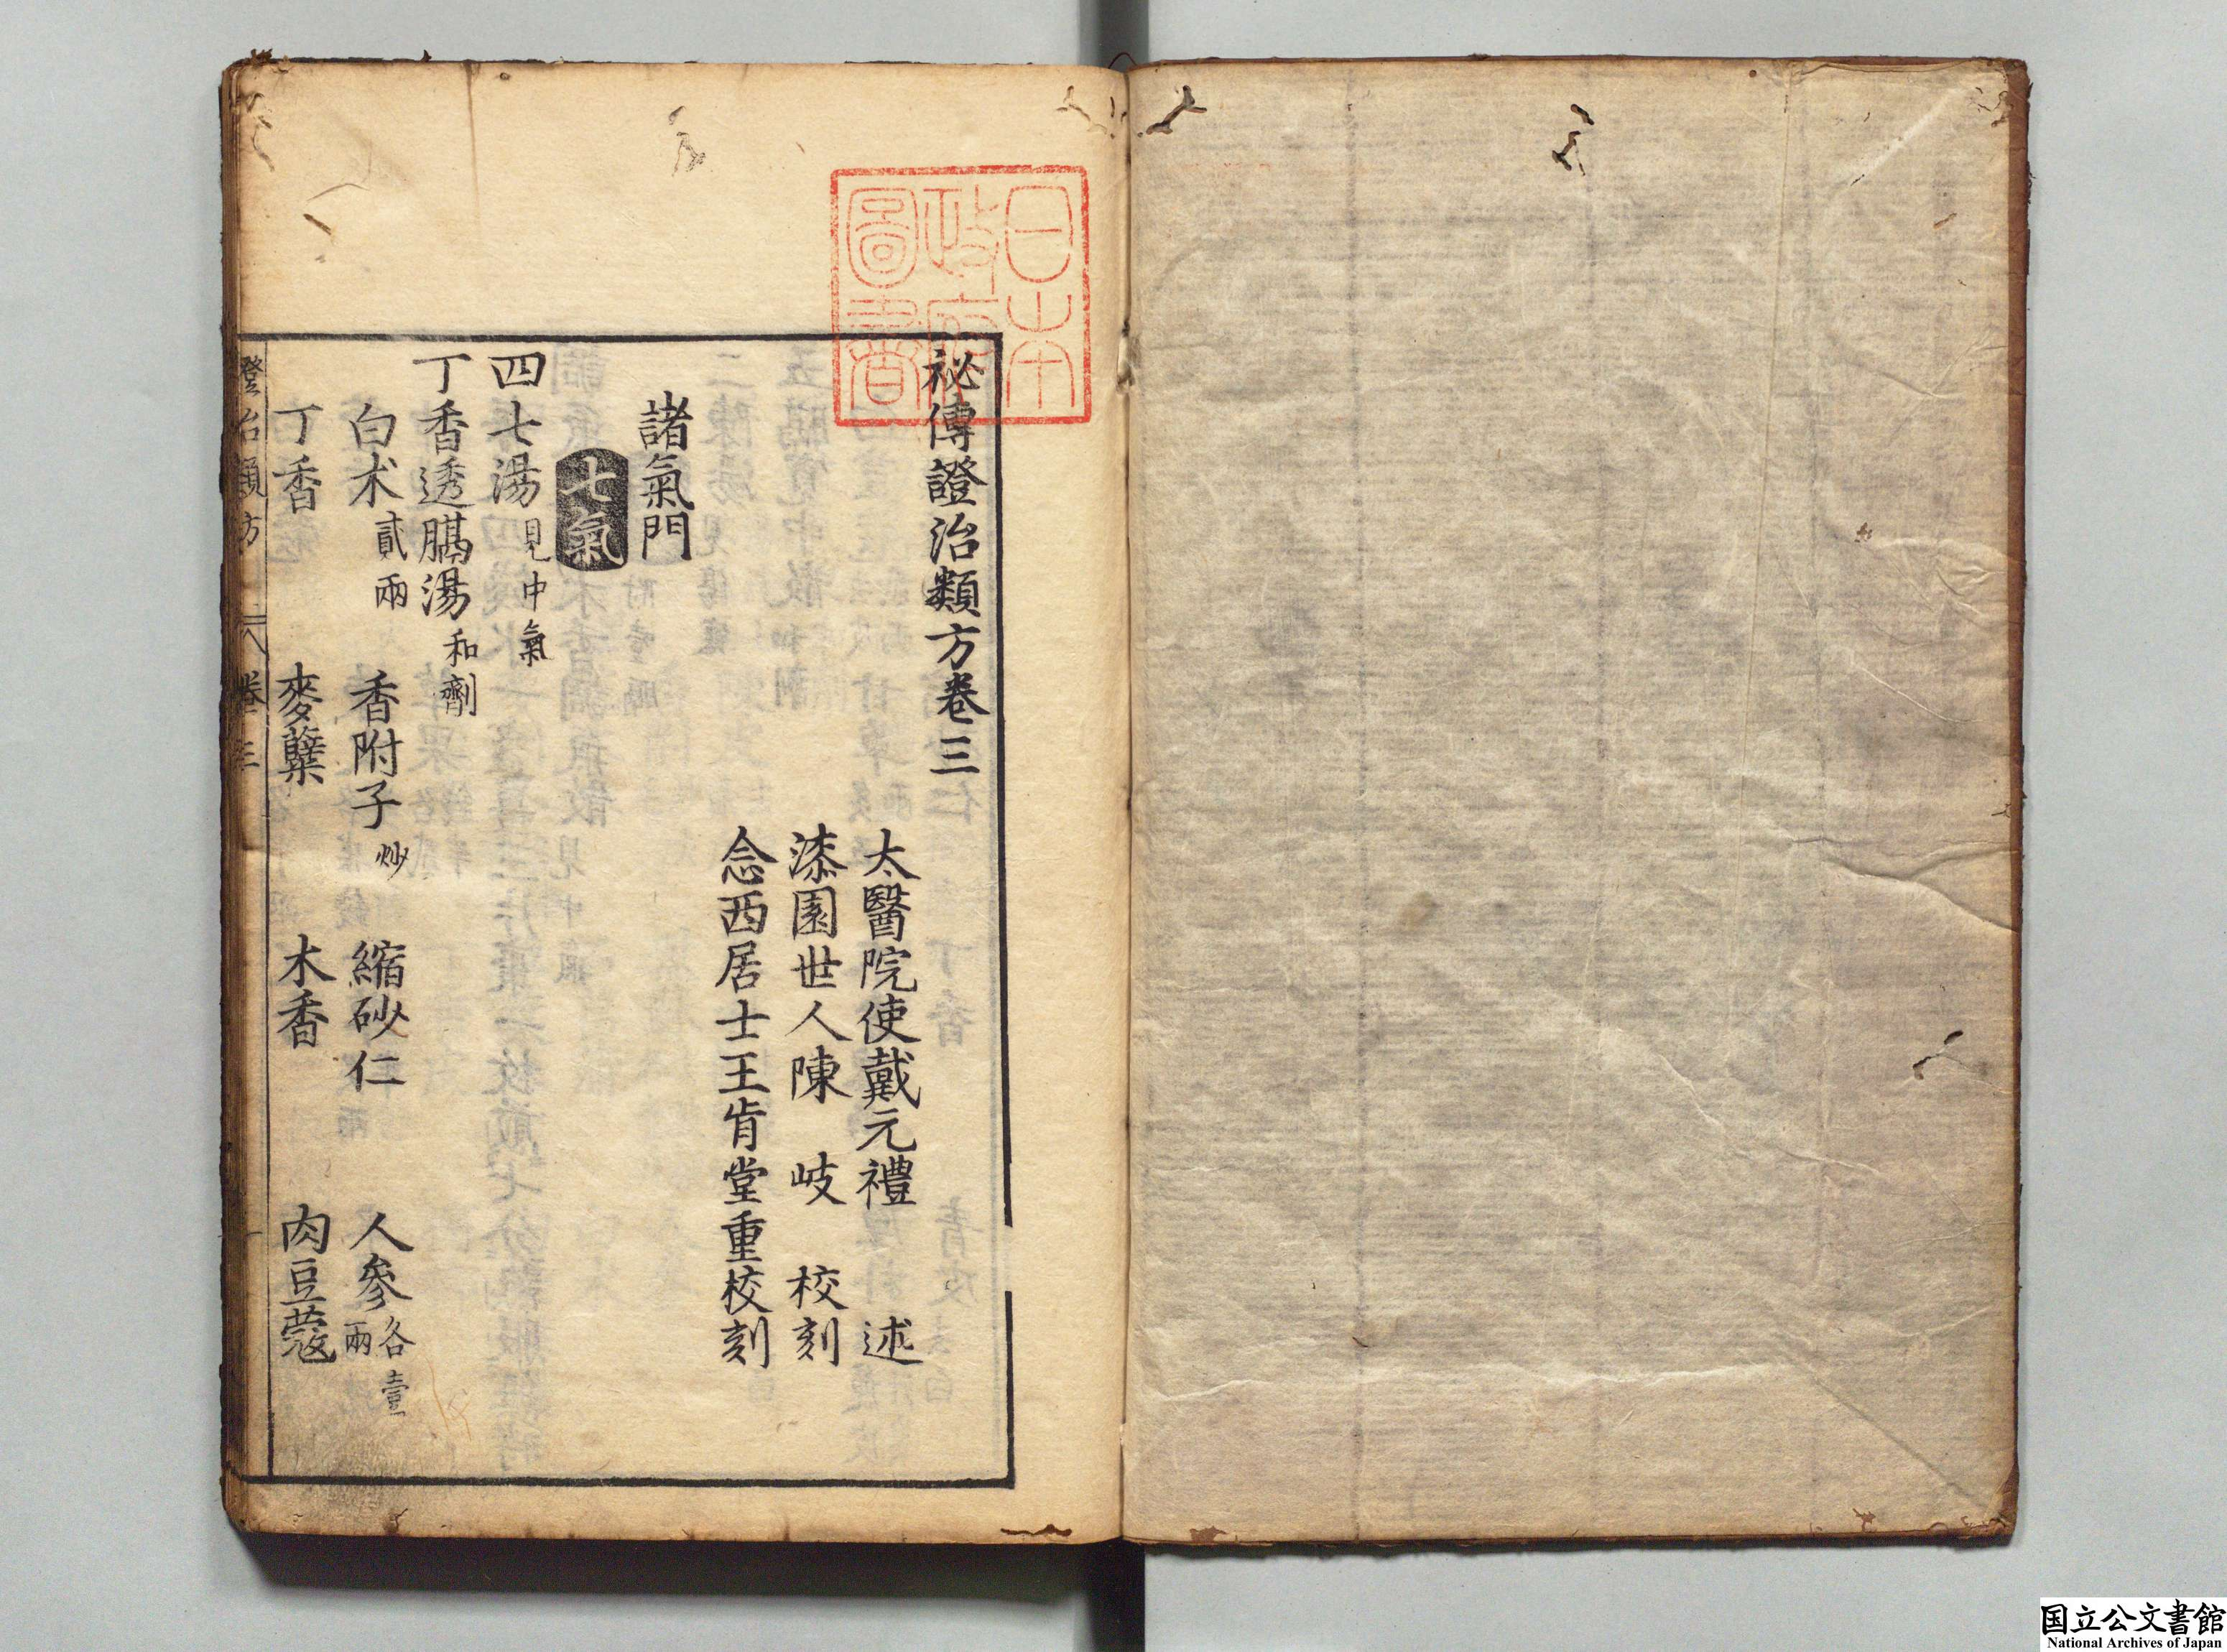 祕傳證治類方卷三
太醫院使戴元禮述
漆園世人陳岐校刻
念西居士王肯堂重校刻
諸氣門
七氣
四七湯見中氣
丁香透膈湯和劑
白朮貳兩 香附子炒 縮砂仁 人參各壹兩
丁香 麥蘖 木香 肉豆蔻
證治類方 卷三
日本
政府
圖書
国立公文書館
National Archives of Japan